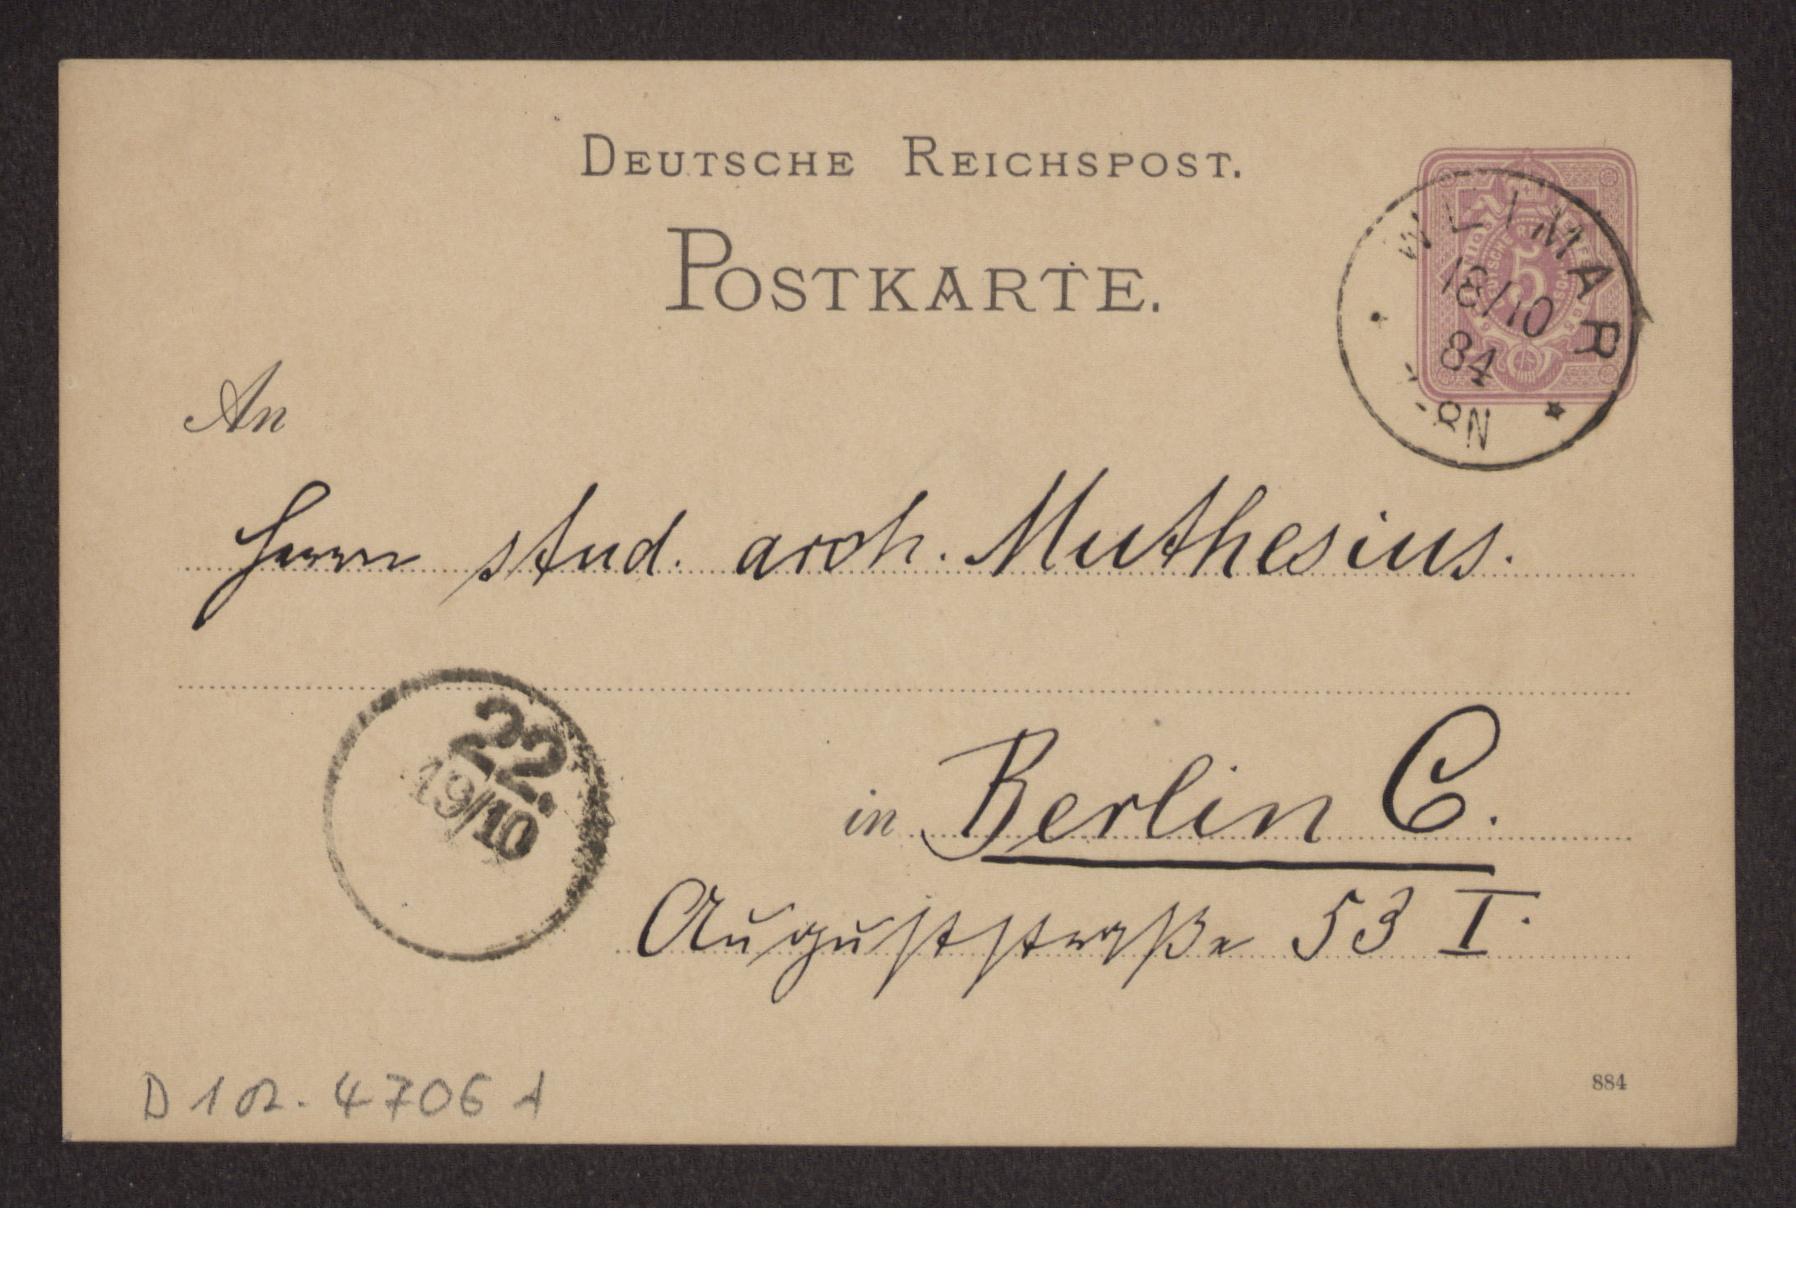 DEUTSCHE REICHSPOST.
POSTKARTE.
WEIMAR
18/10
84
-8N
5
An
Herrn stud. arch. Muthesius.
22.
19/10
in Berlin C.
Auguststraße 53 I.
884
D 1 02. 4706 A